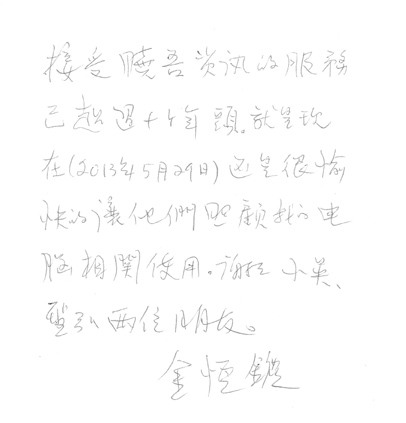 接受曉吾资讯的服務
已超過十个年頭。就是現
在(2013年5月29日)还是很愉
快的讓他們照顧我的电
脑相關使用。謝謝小英、
聖弘兩位朋友。
金恒鑣